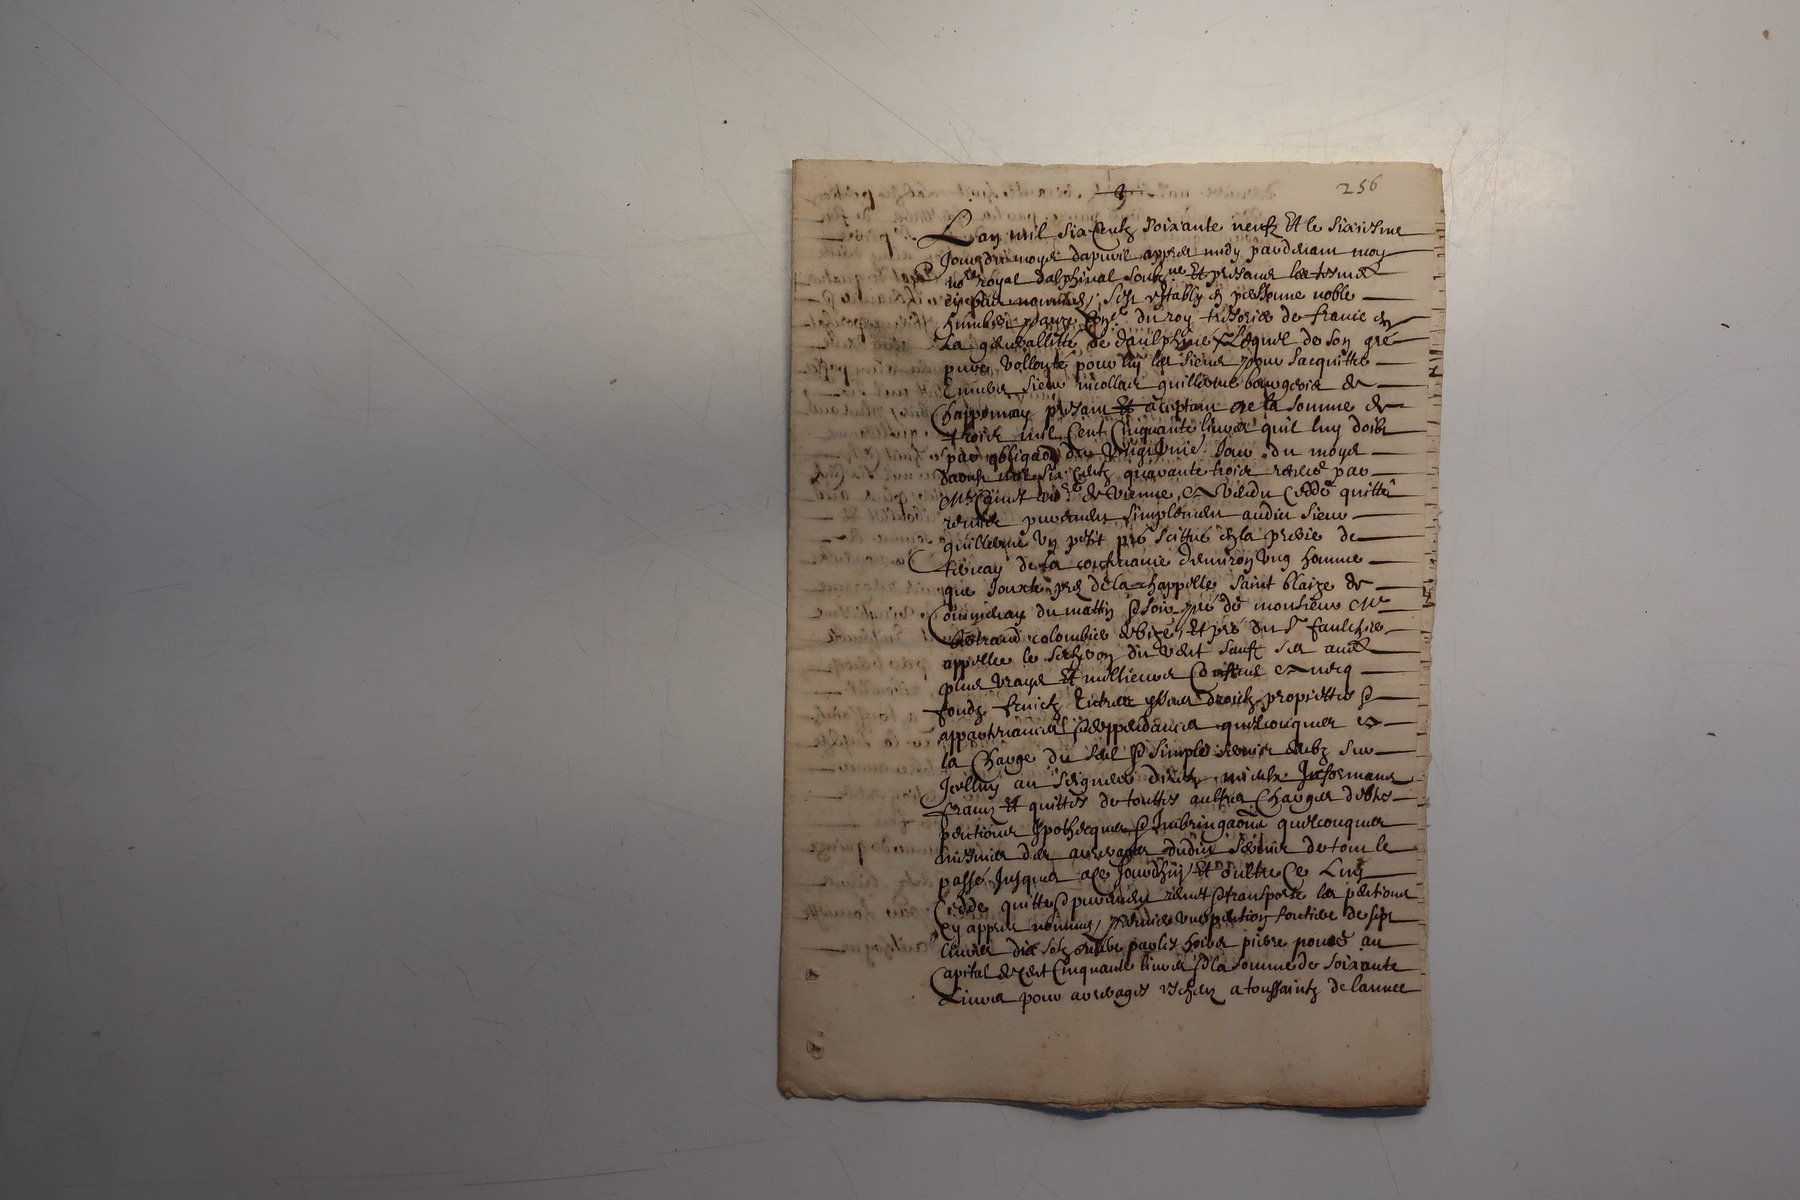 256
Lan mil six centz soixante neufz Et le sixiesme
Jour du moys dapvril appres midy pardevant moy
no.re royal dalphinal soubz.ne Et presans les tesmoins
cy bas nommes, sest estably en personne noble
humbert con.er du roy tresorier de france en
La generallitté de daulphiné Lequel de son gré
pure vollonte pour luy les siens pour sacquitter
Envers sieur nicollas guillerme bourgeois de
Chapponnay presant Et aceptant de la somme de
trois mil Cent Cinquante livres quil luy doibt
par obliga.on du Jour du moys
daoust mil six centz quarante trois receue par
M.re no.re de Vienne, A Vandu Cedde quitte
remis purement simplement audit sieur
guillerme un petit pré scittué en la prerie de
de la contenance denviron ung homme
que Jouxte pré de la chappelle saint blaize de
du mattin & soir pré de monsieur M.re
colombier de bize, Et pré du S.r
appellee le du vent sauf ses aultres
plus vrays Et millieurs Confins Avecq
fondz fruictz Entrees yssues droictz proprietes &
appartenances & deppendances quelconques A
la Charge du seul & simple servis deubz sur
Jcelluy au seigneur direct
francz Et quittes de touttes aultres Charges debtes
pentions Ypothecques & Imbringaons quelconques
mesmes des arreyrages dudit servis de tout le
passé Jusques a ce Jourdhuy, Et oultre Ce Luy
Cedde quitte & purement remet & transporte les pentions
cy appres nommes, premier une pention fontiere de sept
livres dix solz deube par les hoirs pierre au
Capital de cent Cinquante livres & la somme de soixante
Livres pour arreyrages escheuz a toussaintz de lannee